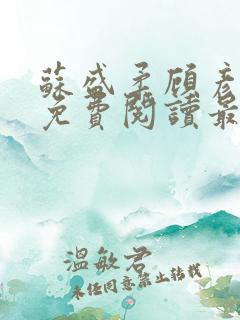 蘇盛柔顧彥
免費閱讀最
溫敏君
未經同意禁止轉載